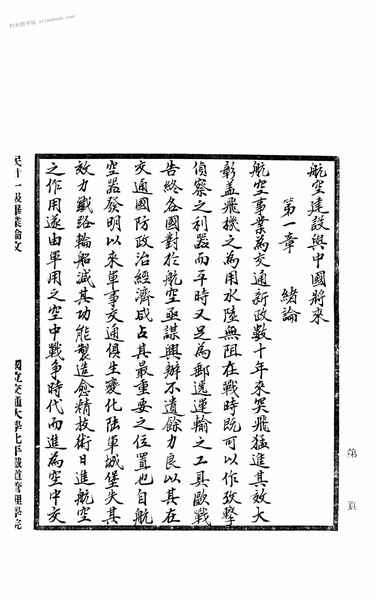 航空建設與中國將來
第一章　緒論
航空事業為交通新政數十年來突飛猛進其效大
彰盖飛機之為用水陸無阻在戰時既可以作攻擊
偵察之利器而平時又足為郵遞運輸之工具歐戰
告終各國對於航空亟謀興辦不遺餘力良以其在
交通國防政治經濟咸占其最重要之位置也自航
空器發明以來軍事交通俱生變化陸軍城堡失其
效力鐵路輪船減其功能製造愈精技術日進航空
之作用遂由軍用之空中戰爭時代而進為空中交
民廿一級畢業論文
國立交通大學北平鐵道管理學院
第　頁